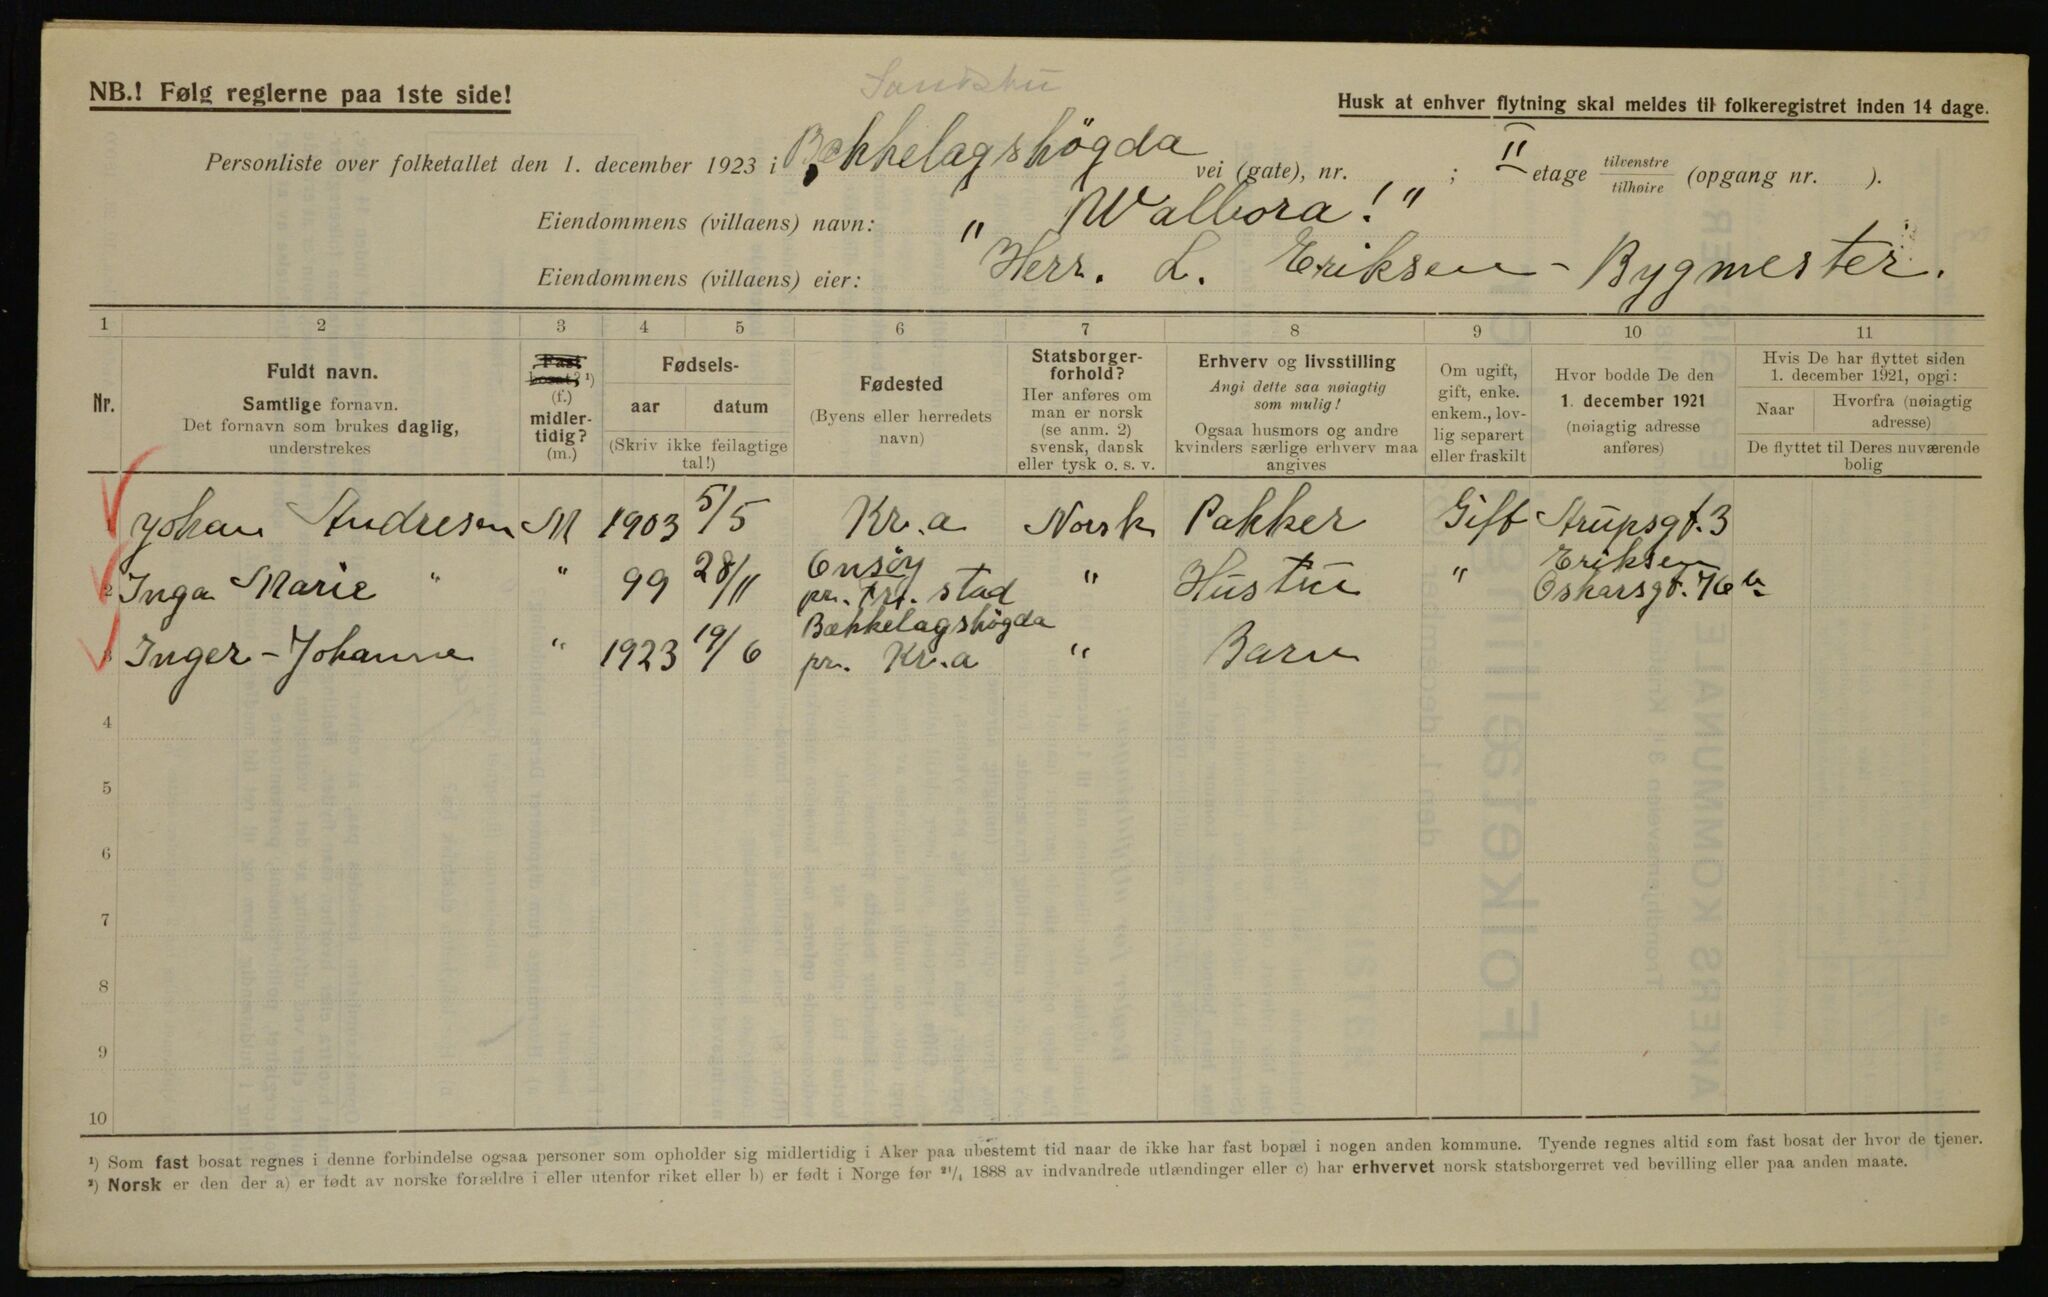 Sandstu
NB.! Følg reglerne paa 1ste side!
Husk at enhver flytning skal meldes til folkeregistret inden 14 dage.
Personliste over folketallet den 1. december 1923 i Bækkelagshögda vei (gate), nr. ; II etage tilvenstre/tilhøire (opgang nr. ).
Eiendommens (villaens) navn: „ Walbora! "
Eiendommens (villaens) eier: Herr. L. Eriksen - Bygmester.
1 2 3 4 5 6 7 8 9 10 11
Nr.
Fuldt navn.
Samtlige fornavn.
Det fornavn som brukes daglig,
understrekes
Fast
bosat? ¹)
(f.)
midler-
tidig?
(m.)
Fødsels-
aar datum
(Skriv ikke feilagtige
tal!)
Fødested
(Byens eller herredets
navn)
Statsborger-
forhold?
Her anføres om
man er norsk
(se anm. 2)
svensk, dansk
eller tysk o. s. v.
Erhverv og livsstilling
Angi dette saa nøiagtig
som mulig!
Ogsaa husmors og andre
kvinders særlige erhverv maa
angives
Om ugift,
gift, enke.
enkem., lov-
lig separert
eller fraskilt
Hvor bodde De den
1. december 1921
(nøiagtig adresse
anføres)
Hvis De har flyttet siden
1. december 1921, opgi:
Naar
Hvorfra (nøiagtig
adresse)
De flyttet til Deres nuværende
bolig
1 Johan Andresen M 1903 5/5 Kr.a Norsk Pakker Gift Strupsgt. 3
2 Inga Marie " " 99 28/11 Onsöy pr. Fr. stad " Hustru " Eriksen Oskarsgt. 76 b
3 Inger-Johanne " 1923 19/6 Bækkelagshögda pr. Kr.a " Barn
4
5
6
7
8
9
10
¹) Som fast bosat regnes i denne forbindelse ogsaa personer som opholder sig midlertidig i Aker paa ubestemt tid naar de ikke har fast bopæl i nogen anden kommune. Tyende regnes altid som fast bosat der hvor de tjener.
²) Norsk er den der a) er født av norske forældre i eller utenfor riket eller b) er født i Norge før 21/4 1888 av indvandrede utlændinger eller c) har erhvervet norsk statsborgerret ved bevilling eller paa anden maate.